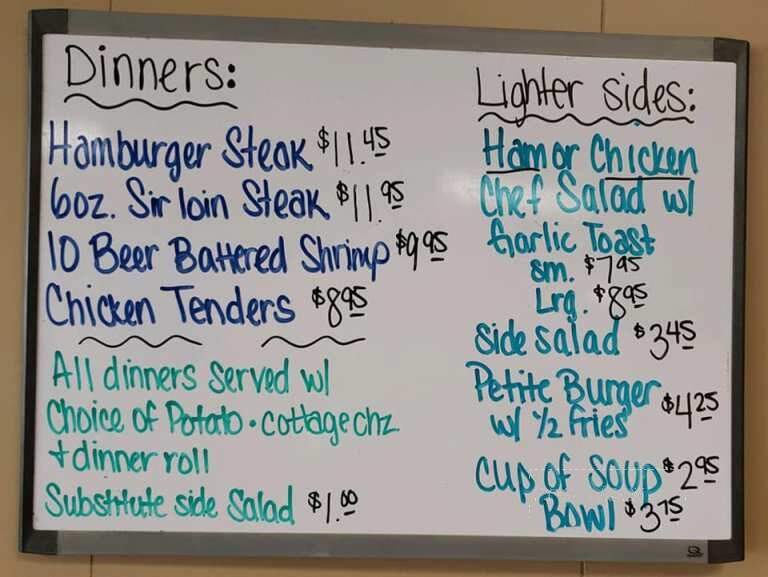 Dinners:
Hamburger Steak $11.45
6oz. Sirloin Steak $11.95
10 Beer Battered Shrimp $9.95
Chicken Tenders $8.95
All dinners served w/
Choice of Potato • cottage chz
+ dinner roll
Substitute side Salad $1.00
Lighter sides:
Ham or Chicken
Chef Salad w/
Garlic Toast
sm. $7.95
Lrg. $8.95
side salad $3.45
Petite Burger
w/ 1/2 fries $4.25
Cup of Soup $2.95
Bowl $3.75